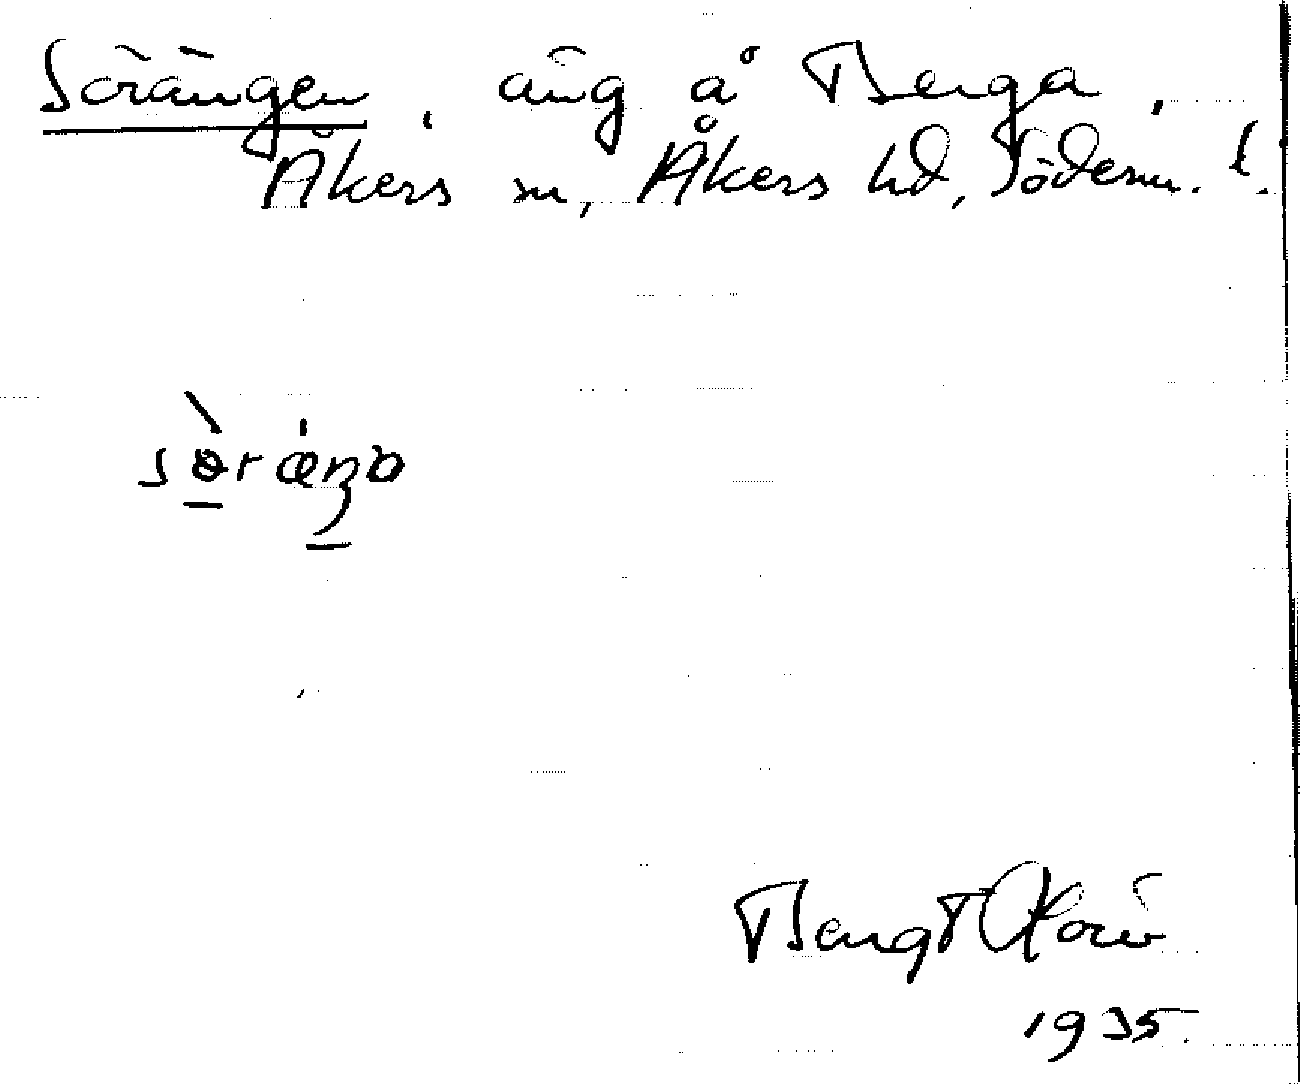 Sörängen, äng å Berga,
Åkers sn, Åkers hd, Söderm. l.
sø̀ræŋo
Bengt
1935.